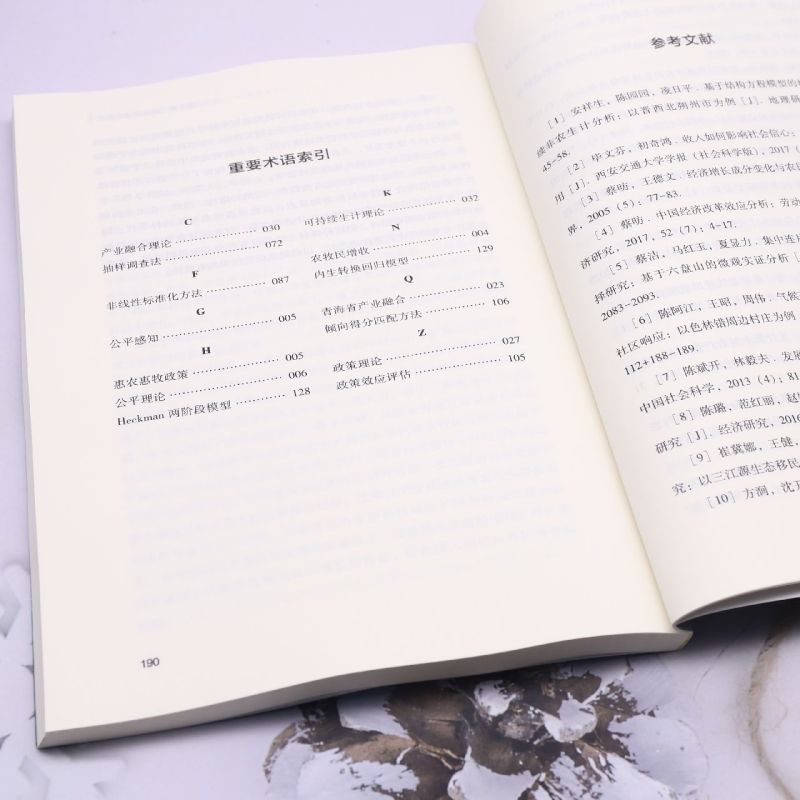 重要术语索引
C
产业融合理论 030
抽样调查法 072
F
非线性标准化方法 087
G
公平感知 005
H
惠农惠牧政策 005
公平理论 006
Heckman 两阶段模型 128
K
可持续生计理论 032
N
农牧民增收 004
内生转换回归模型 129
Q
青海省产业融合 023
倾向得分匹配方法 106
Z
政策理论 027
政策效应评估 105
190
参考文献
[1] 安祥生，陈园园，凌日平．基于结构方程模型的
续非农生计分析：以晋西北朔州市为例 [J]．地理研
45-58.
[2] 毕文芬，初奇鸿．收入如何影响社会信心：
用 [J]．西安交通大学学报（社会科学版），2017（
[3] 蔡昉，王德文．经济增长成分变化与农民
界，2005（5）：77-83.
[4] 蔡昉．中国经济改革效应分析：劳动
济研究，2017，52（7）：4-17.
[5] 蔡洁，马红玉，夏显力．集中连片
择研究：基于六盘山的微观实证分析 [
2083-2093.
[6] 陈阿江，王昭，周伟．气候
社区响应：以色林错周边村庄为例
112+188-189.
[7] 陈斌开，林毅夫．发展
中国社会科学，2013（4）：81
[8] 陈璐，范红丽，赵
研究 [J]．经济研究，2016
[9] 崔冀娜，王健，
究：以三江源生态移民
[10] 方涧，沈开